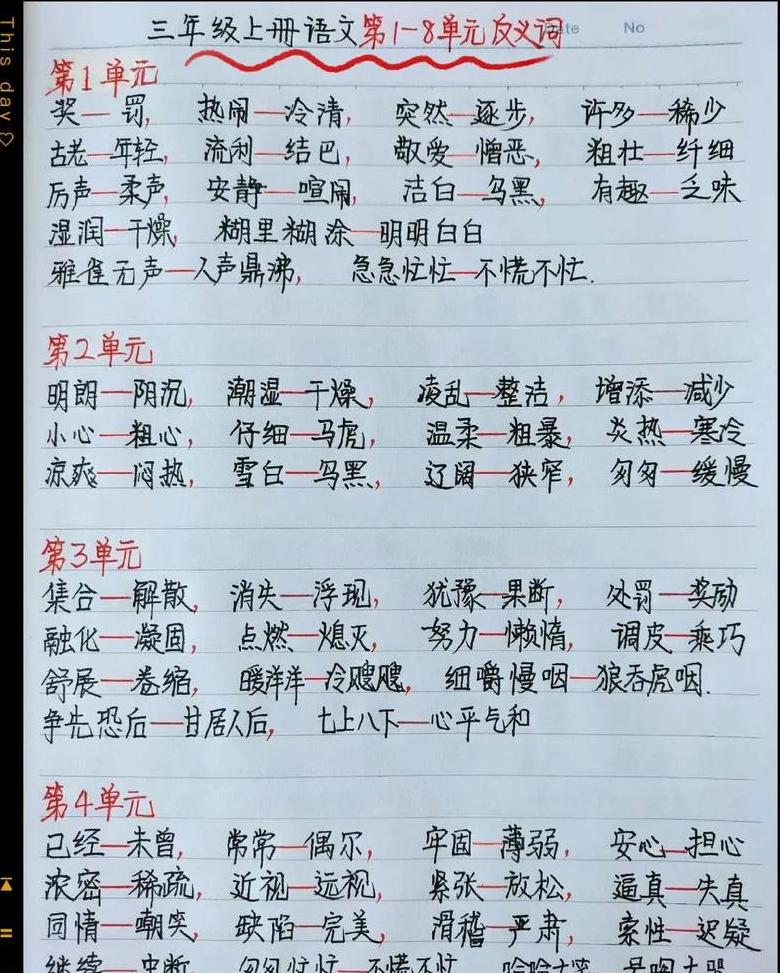 三年级上册语文第1-8单元反义词
Date No
This day
第1单元
奖—罚, 热闹—冷清, 突然—逐步, 许多—稀少
古老—年轻, 流利—结巴, 敬爱—憎恶, 粗壮—纤细
厉声—柔声, 安静—喧闹, 洁白—乌黑, 有趣—乏味
湿润—干燥, 糊里糊涂—明明白白
雅雀无声—人声鼎沸, 急急忙忙—不慌不忙.
第2单元
明朗—阴沉, 潮湿—干燥, 凌乱—整洁, 增添—减少
小心—粗心, 仔细—马虎, 温柔—粗暴, 炎热—寒冷
凉爽—闷热, 雪白—乌黑, 辽阔—狭窄, 匆匆—缓慢
第3单元
集合—解散, 消失—浮现, 犹豫—果断, 处罚—奖励
融化—凝固, 点燃—熄灭, 努力—懒惰, 调皮—乖巧
舒展—卷缩, 暖洋洋—冷飕飕, 细嚼慢咽—狼吞虎咽.
争先恐后—甘居人后, 七上八下—心平气和
第4单元
已经—未曾, 常常—偶尔, 牢固—薄弱, 安心—担心
浓密—稀疏, 近视—远视, 紧张—放松, 逼真—失真
同情—嘲笑, 缺陷—完美, 滑稽—严肃, 索性—迟疑
继续—中断, 匆匆忙忙—不慌不忙